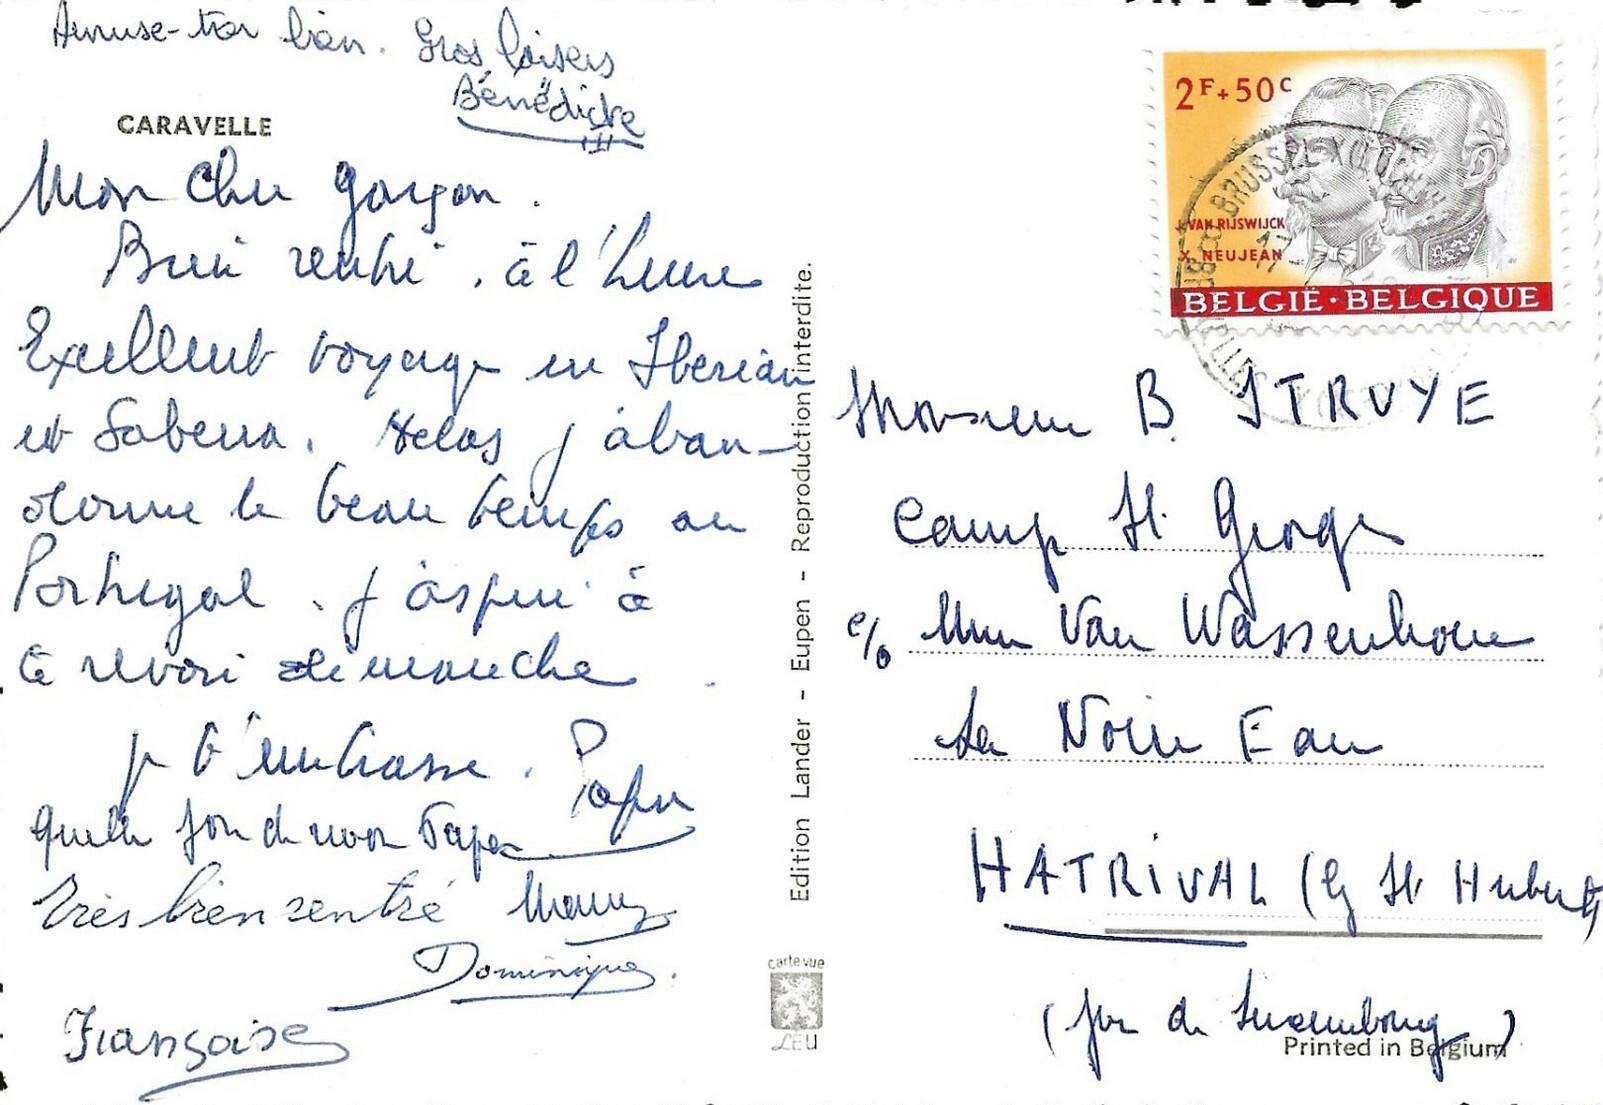 Amuse-toi bien. Gros baisers
Bénédicte
CARAVELLE
Mon cher garçon.
Bien rentré, à l'heure
Excellent voyage en Iberian
et Sabena. Helas j'aban-
donne le beau temps au
Portugal. J'aspire à
te revoir dimanche.
je t'embrasse. Papa
Très bien rentré Mamy
Dominique.
Françoise
Edition Lander - Eupen - Reproduction interdite.
carte vue
LEU
2F+50C
J. VAN RIJSWIJCK
X. NEUJEAN
BELGIË·BELGIQUE
Monsieur B. STRUYE
Camp St. George
c/o Mme Van Wassenhove
La Noire Eau
HATRIVAL (lg St Hubert)
(de Luxembourg)
Printed in Belgium